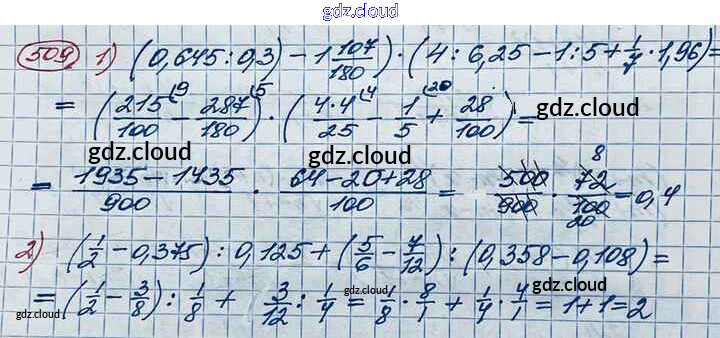 gdz.cloud
509 1) (0,645 : 0,3) - 1 107/180) · (4 : 6,25 - 1 : 5 + 1/7 · 1,96) =
= (215/100 (9 - 287/180 (5) · (4·4/25 (4 - 1/5 (20 + 28/100) =
gdz.cloud
gdz.cloud gdz.cloud
= 1935 - 1435/900 · 64 - 20 + 28/100 = 500/900 · 72/100 = 0,4
8
20
gdz.cloud
2) (1/2 - 0,375) : 0,125 + (5/6 - 7/12) : (0,358 - 0,108) =
= (1/2 - 3/8) : 1/8 + 3/12 : 1/4 = 1/8 · 8/1 + 1/4 · 4/1 = 1 + 1 = 2
gdz.cloud gdz.cloud gdz.cloud